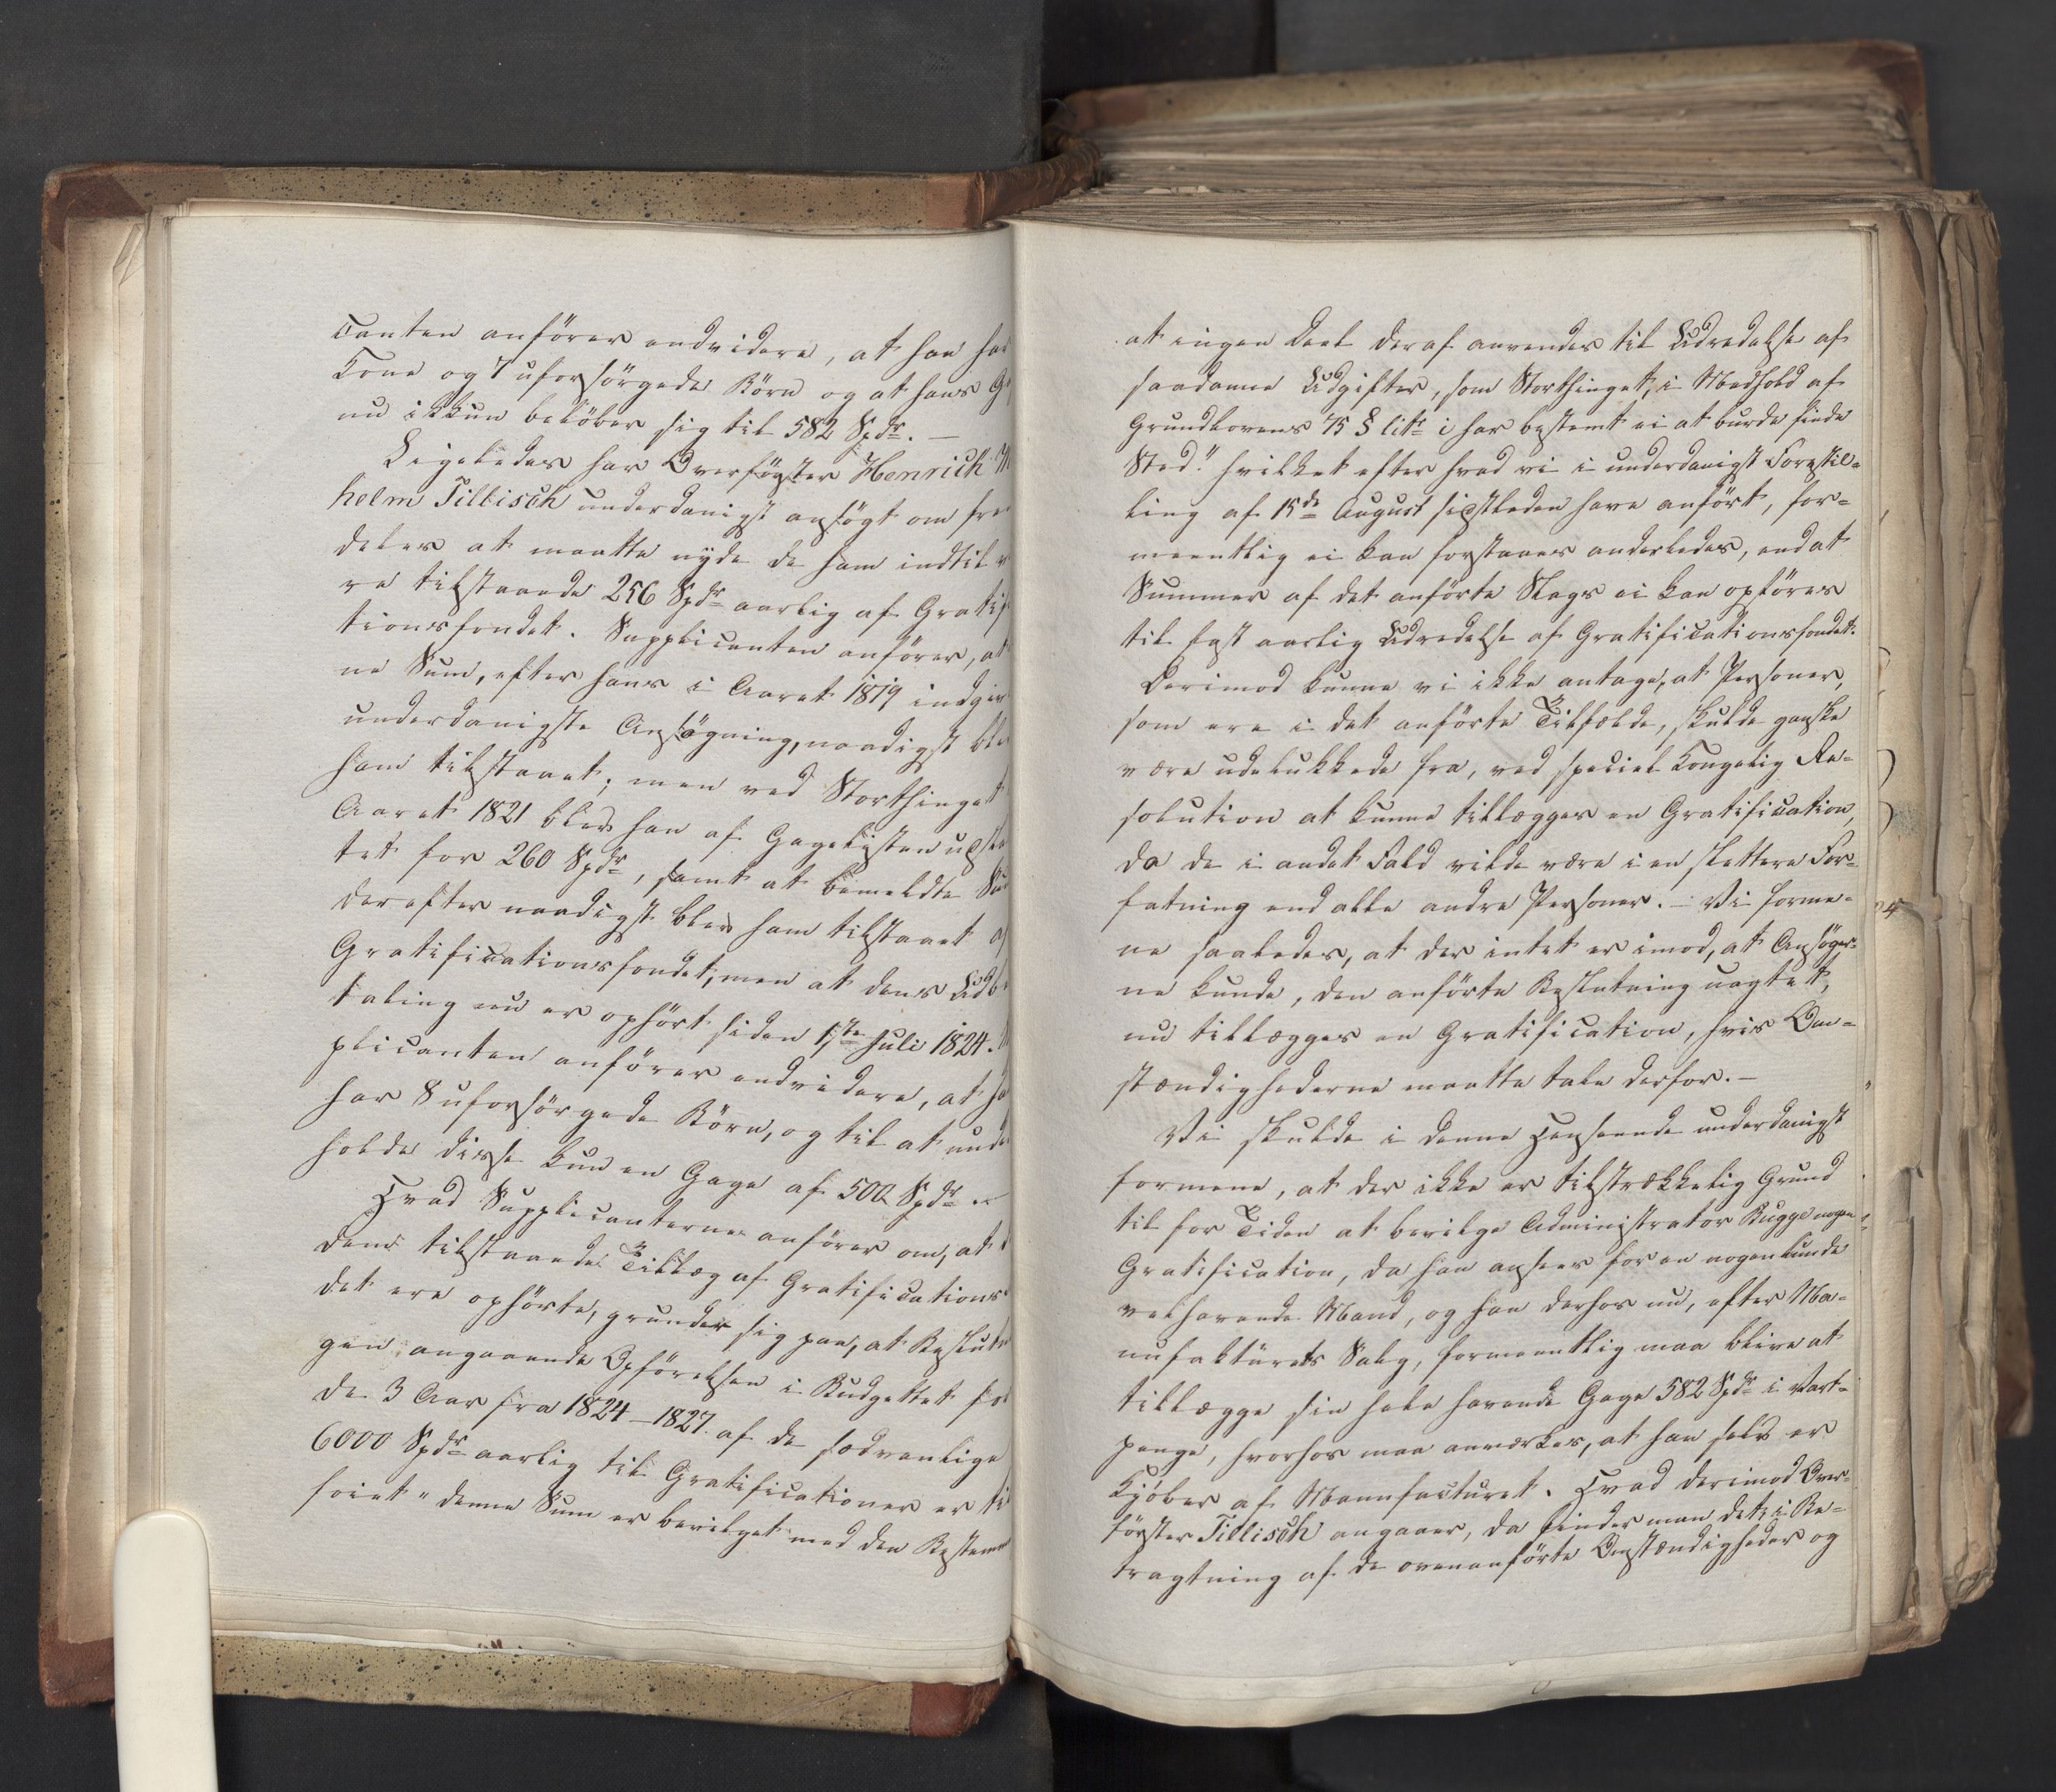 canten anfører endvidere, at han har
Kone og 7 uforsørgede Børn og at hans G
nu ikkun beløber sig til 582 Spdr. —
Ligeledes har Overførster Henrich W
helm Tillisch underdanigst ansøgt om frem
deles at maatte nyde de ham indtil
re tilstaaede 256 Spdr aarlig af Gratif
tionsfondet. Supplicanten anfører, at
ne Sum, efter hans i Aaret 1819 indgiv
underdanigste Ansøgning, naadigst blev
ham tilstaaet; men ved Storthinget
Aaret 1821 blev han af Gagelisten udslet
tet for 260 Spdr, samt at bemeldte Sum
derefter naadigst blev ham tilstaaet af
Gratificationsfondet, men at dens Udbe
taling nu er ophørt siden 1ste Juli 1824.
plicanten anfører endvidere, at ha
har 8 uforsørgede Børn, og til at unde
holde disse kun en Gage af 502 Spdr.
Hvad Supplicanterne anfører om, at
dem tilstaaede Tillæg af Gratifications
det ere ophørte, grunder sig paa, at Beslut
gen angaaende Opførelsen i Budgettet for
de 3 Aar fra 1824–1827. af de sædvanlige
6000 Spdr aarlig til Gratificationer er til
føiet „denne Sum er bevilget med den Bestemm
at ingen Deel deraf anvendes til Udredelse af
saadanne Udgifter, som Storthinget, i Medhold af
Grundlovens 75 § litr i har bestemt ei at burde finde
Sted." hvilket efter hvad vi i underdanigst Forestil=
ling af 15de August sidstleden have anført, for=
meentlig ei kan forstaaes anderledes, end at
Summer af det anførte Slags ei kan opføres
til fast aarlig Udredelse af Gratificationsfondet.
Derimod kunne vi ikke antage, at Personer,
som ere i det anførte Tilfælde, skulde ganske
være udelukkede fra, ved speciel Kongelig Re=
solution at kunne tillægges en Gratification,
da de i andet Fald vilde være i en slettere For=
fatning end alle andre Personer. — Vi forme=
ne saaledes, at der intet er imod, at Ansøger=
ne kunde, den anførte Beslutning uagtet,
nu tillægges en Gratification, hvis Om=
stændighederne maatte tale derfor. —
Vi skulde i denne Henseende underdanigst
formene, at der ikke er tilstrækkelig Grund
til for Tiden at bevilge Administrator Bugge nogen
Gratification, da han ansees for en nogenlunde
velhavende Mand, og han derhos nu, efter Ma=
nufakturets Salg, formeentlig maa blive at
tillægge sin hele havende Gage 582 Spdr i Vart=
penge, hvorhos maa anmærkes, at han selv er
Kjøber af Manufacturet. Hvad derimod Over=
førster Tillisch angaaer, da finder man det, i Be=
tragtning af de ovenanførte Omstændigheder og